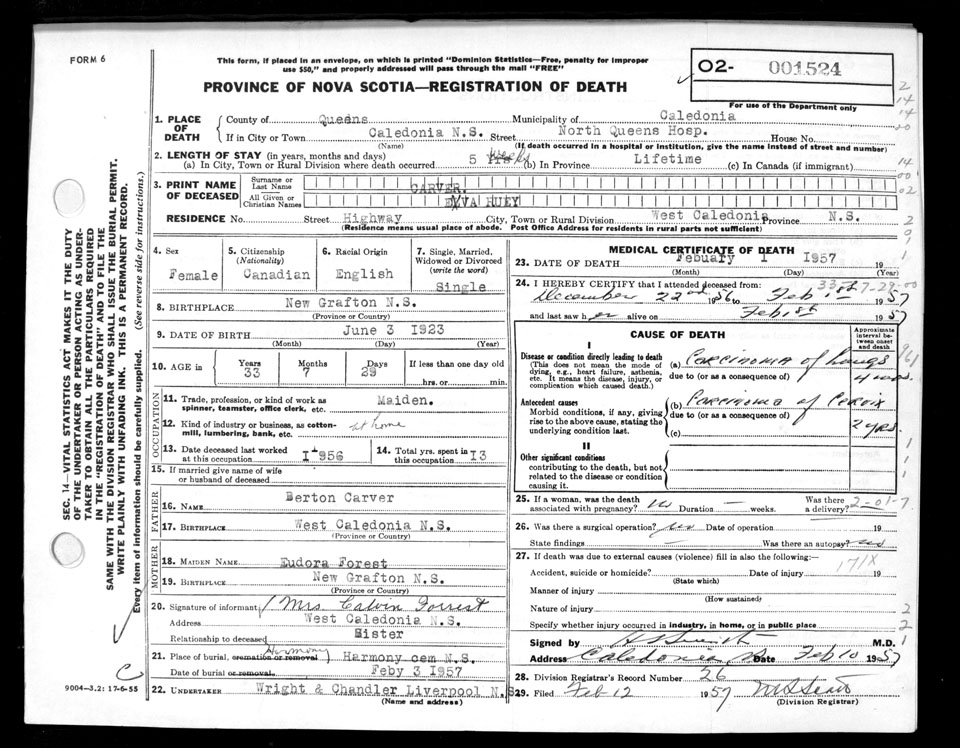 FORM 6
This form, if placed in an envelope, on which is printed "Dominion Statistics—Free, penalty for improper
use $50," and properly addressed will pass through the mail "FREE"
O2- 001524
For use of the Department only
PROVINCE OF NOVA SCOTIA—REGISTRATION OF DEATH
1. PLACE OF DEATH
County of Queens Municipality of Caledonia
If in City or Town Caledonia N.S. Street North Queens Hosp. House No.
(Name) (If death occurred in a hospital or institution, give the name instead of street and number)
2. LENGTH OF STAY (in years, months and days)
(a) In City, Town or Rural Division where death occurred 5 weeks (b) In Province Lifetime (c) In Canada (if immigrant)
3. PRINT NAME OF DECEASED
Surname or Last Name CARVER.
All Given or Christian Names EVA HUEY
RESIDENCE No. Street Highway City, Town or Rural Division West Caledonia Province N.S.
(Residence means usual place of abode. Post Office Address for residents in rural parts not sufficient)
4. Sex
Female
5. Citizenship
(Nationality)
Canadian
6. Racial Origin
English
7. Single, Married,
Widowed or Divorced
(write the word)
Single
8. BIRTHPLACE New Grafton N.S.
(Province or Country)
9. DATE OF BIRTH June 3 1923
(Month) (Day) (Year)
10. AGE in
Years 33
Months 7
Days 29
If less than one day old
hrs. or min.
OCCUPATION
11. Trade, profession, or kind of work as
spinner, teamster, office clerk, etc. Maiden.
12. Kind of industry or business, as cotton-
mill, lumbering, bank, etc. at home
13. Date deceased last worked
at this occupation 1956
14. Total yrs. spent in
this occupation 13
15. If married give name of wife
or husband of deceased
FATHER
16. NAME Berton Carver
17. BIRTHPLACE West Caledonia N.S.
(Province or Country)
MOTHER
18. MAIDEN NAME Eudora Forest
19. BIRTHPLACE New Grafton N.S.
(Province or Country)
20. Signature of informant Mrs. Calvin Forrest
Address West Caledonia N.S.
Relationship to deceased Sister
21. Place of burial, cremation or removal Harmony Harmony cem N.S.
Date of burial or removal Feby 3 1957
22. UNDERTAKER Wright & Chandler Liverpool N.S.
(Name and address)
MEDICAL CERTIFICATE OF DEATH
23. DATE OF DEATH Febuary 1 1957 19
(Month) (Day) (Year)
24. I HEREBY CERTIFY that I attended deceased from:
December 22nd 1956 to Feb 1st 1957
and last saw her alive on Feb 1st 1957
CAUSE OF DEATH
Approximate interval between onset and death
I
Disease or condition directly leading to death
(This does not mean the mode of
dying, e.g., heart failure, asthenia,
etc. It means the disease, injury, or
complication which caused death.)
(a) Carcinoma of Lungs
due to (or as a consequence of)
Antecedent causes
Morbid conditions, if any, giving
rise to the above cause, stating the
underlying condition last.
(b) Carcinoma of Cervix
due to (or as a consequence of)
2 yrs.
(c)
II
Other significant conditions
contributing to the death, but not
related to the disease or condition
causing it.
25. If a woman, was the death
associated with pregnancy? no Duration — weeks. Was there
a delivery?
2-01-7
26. Was there a surgical operation? no Date of operation 19
State findings Was there an autopsy? no
27. If death was due to external causes (violence) fill in also the following:—
171X
Accident, suicide or homicide? Date of injury 19
(State which)
Manner of injury
(How sustained)
Nature of injury
Specify whether injury occurred in industry, in home, or in public place
Signed by M.D.
Address Caledonia Date Feb 10 1957
28. Division Registrar's Record Number 26
29. Filed Feb 12 1957
(Division Registrar)
SEC. 14—VITAL STATISTICS ACT MAKES IT THE DUTY
OF THE UNDERTAKER OR PERSON ACTING AS UNDER-
TAKER TO OBTAIN ALL THE PARTICULARS REQUIRED
IN THE "REGISTRATION OF DEATH" AND TO FILE THE
SAME WITH THE DIVISION REGISTRAR WHO SHALL ISSUE THE BURIAL PERMIT.
WRITE PLAINLY WITH UNFADING INK. THIS IS A PERMANENT RECORD.
Every item of information should be carefully supplied. (See reverse side for instructions.)
C
9004-3.2: 17-6-55